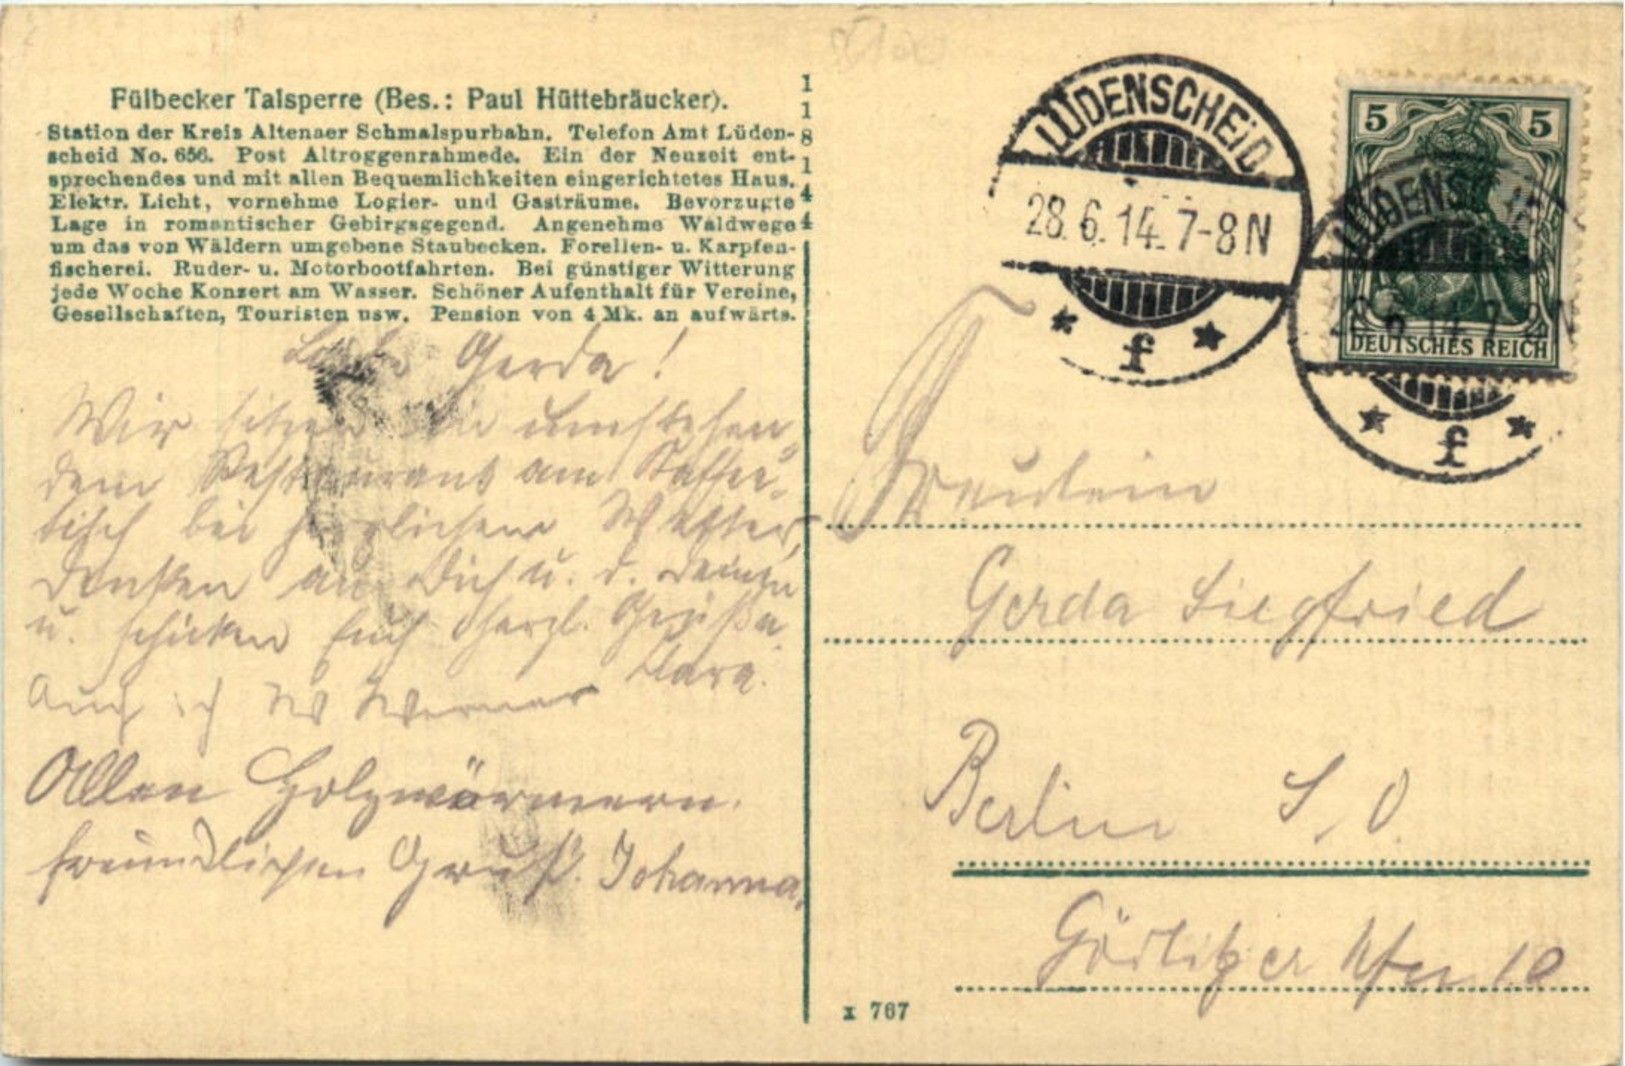 Fülbecker Talsperre (Bes.: Paul Hüttebräucker).
Station der Kreis Altenaer Schmalspurbahn. Telefon Amt Lüden-
scheid No. 656. Post Altroggenrahmede. Ein der Neuzeit ent-
sprechendes und mit allen Bequemlichkeiten eingerichtetes Haus.
Elektr. Licht, vornehme Logier- und Gasträume. Bevorzugte
Lage in romantischer Gebirgsgegend. Angenehme Waldwege
um das von Wäldern umgebene Staubecken. Forellen- u. Karpfen-
fischerei. Ruder- u. Motorbootfahrten. Bei günstiger Witterung
jede Woche Konzert am Wasser. Schöner Aufenthalt für Vereine,
Gesellschaften, Touristen usw. Pension von 4 Mk. an aufwärts.
Gerda!
Wir sitzen in umstehen-
dem Restaurant am Kaffee-
tisch bei herrlichem Wetter,
denken an Dich u. d. Deinen
u. schicken Euch herzl. Grüße
Clara.
Auch ich Werner
Allen Holzwürmern
freundlichen Gruß. Johanna.
118144
LÜDENSCHEID
28.6.14. 7-8 N
* f *
5 5
DEUTSCHES REICH
LÜDENSCHEID
28.6.14. 7-8 N
* f *
Fräulein
Gerda Siegfried
Berlin S.O.
Görlitzer Ufer 10
x 767